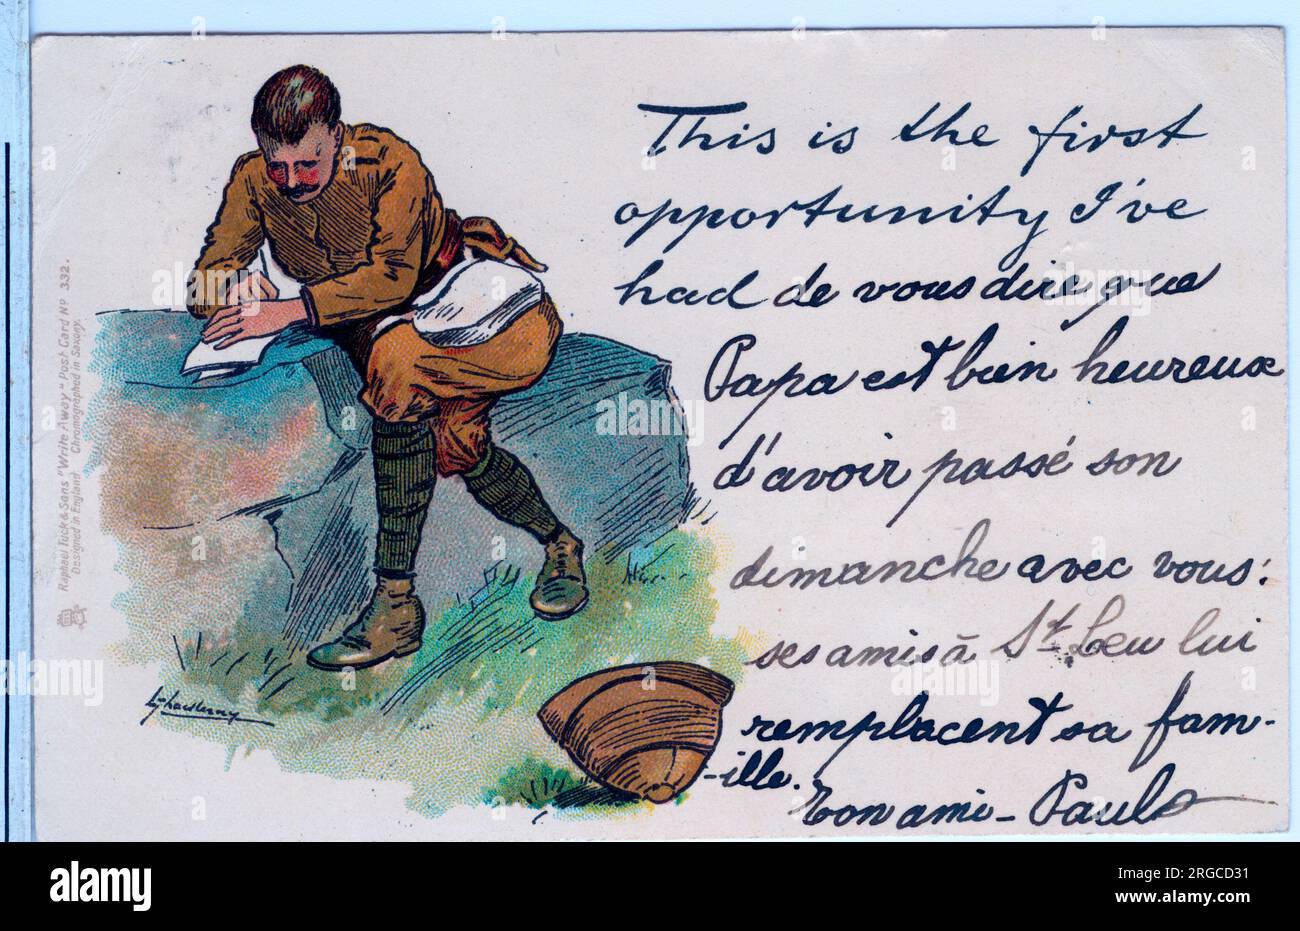 This is the first
opportunity I've
had de vous dire que
Papa est bien heureux
d'avoir passé son
dimanche avec vous:
ses amis à St. Leu lui
remplacent sa fam-
-ille.
Ton ami - Paul
Raphael Tuck & Sons "Write Away" Post Card Nº 332.
Designed in England Chromographed in Saxony.
alamy
alamy
Image ID: 2RGCD31
www.alamy.com